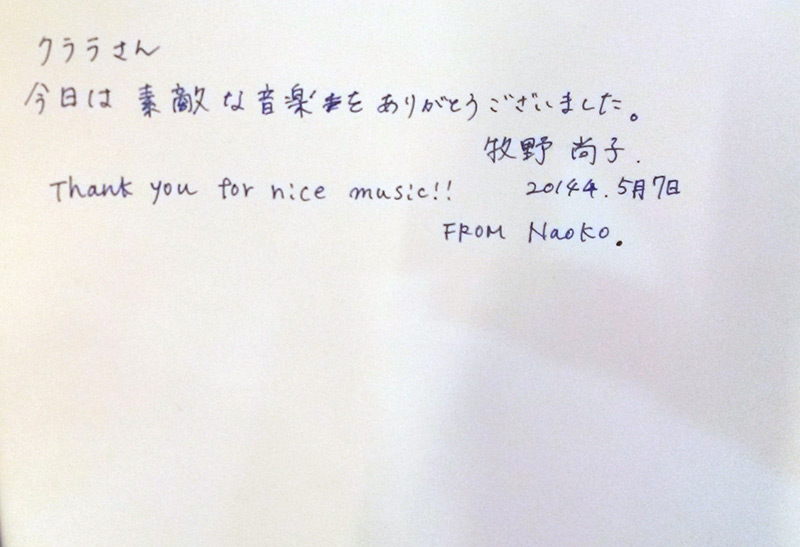 クララさん
今日は 素敵な音楽をありがとうございました。
牧野 尚子.
Thank you for nice music!! 2014年.5月7日
FROM Naoko.